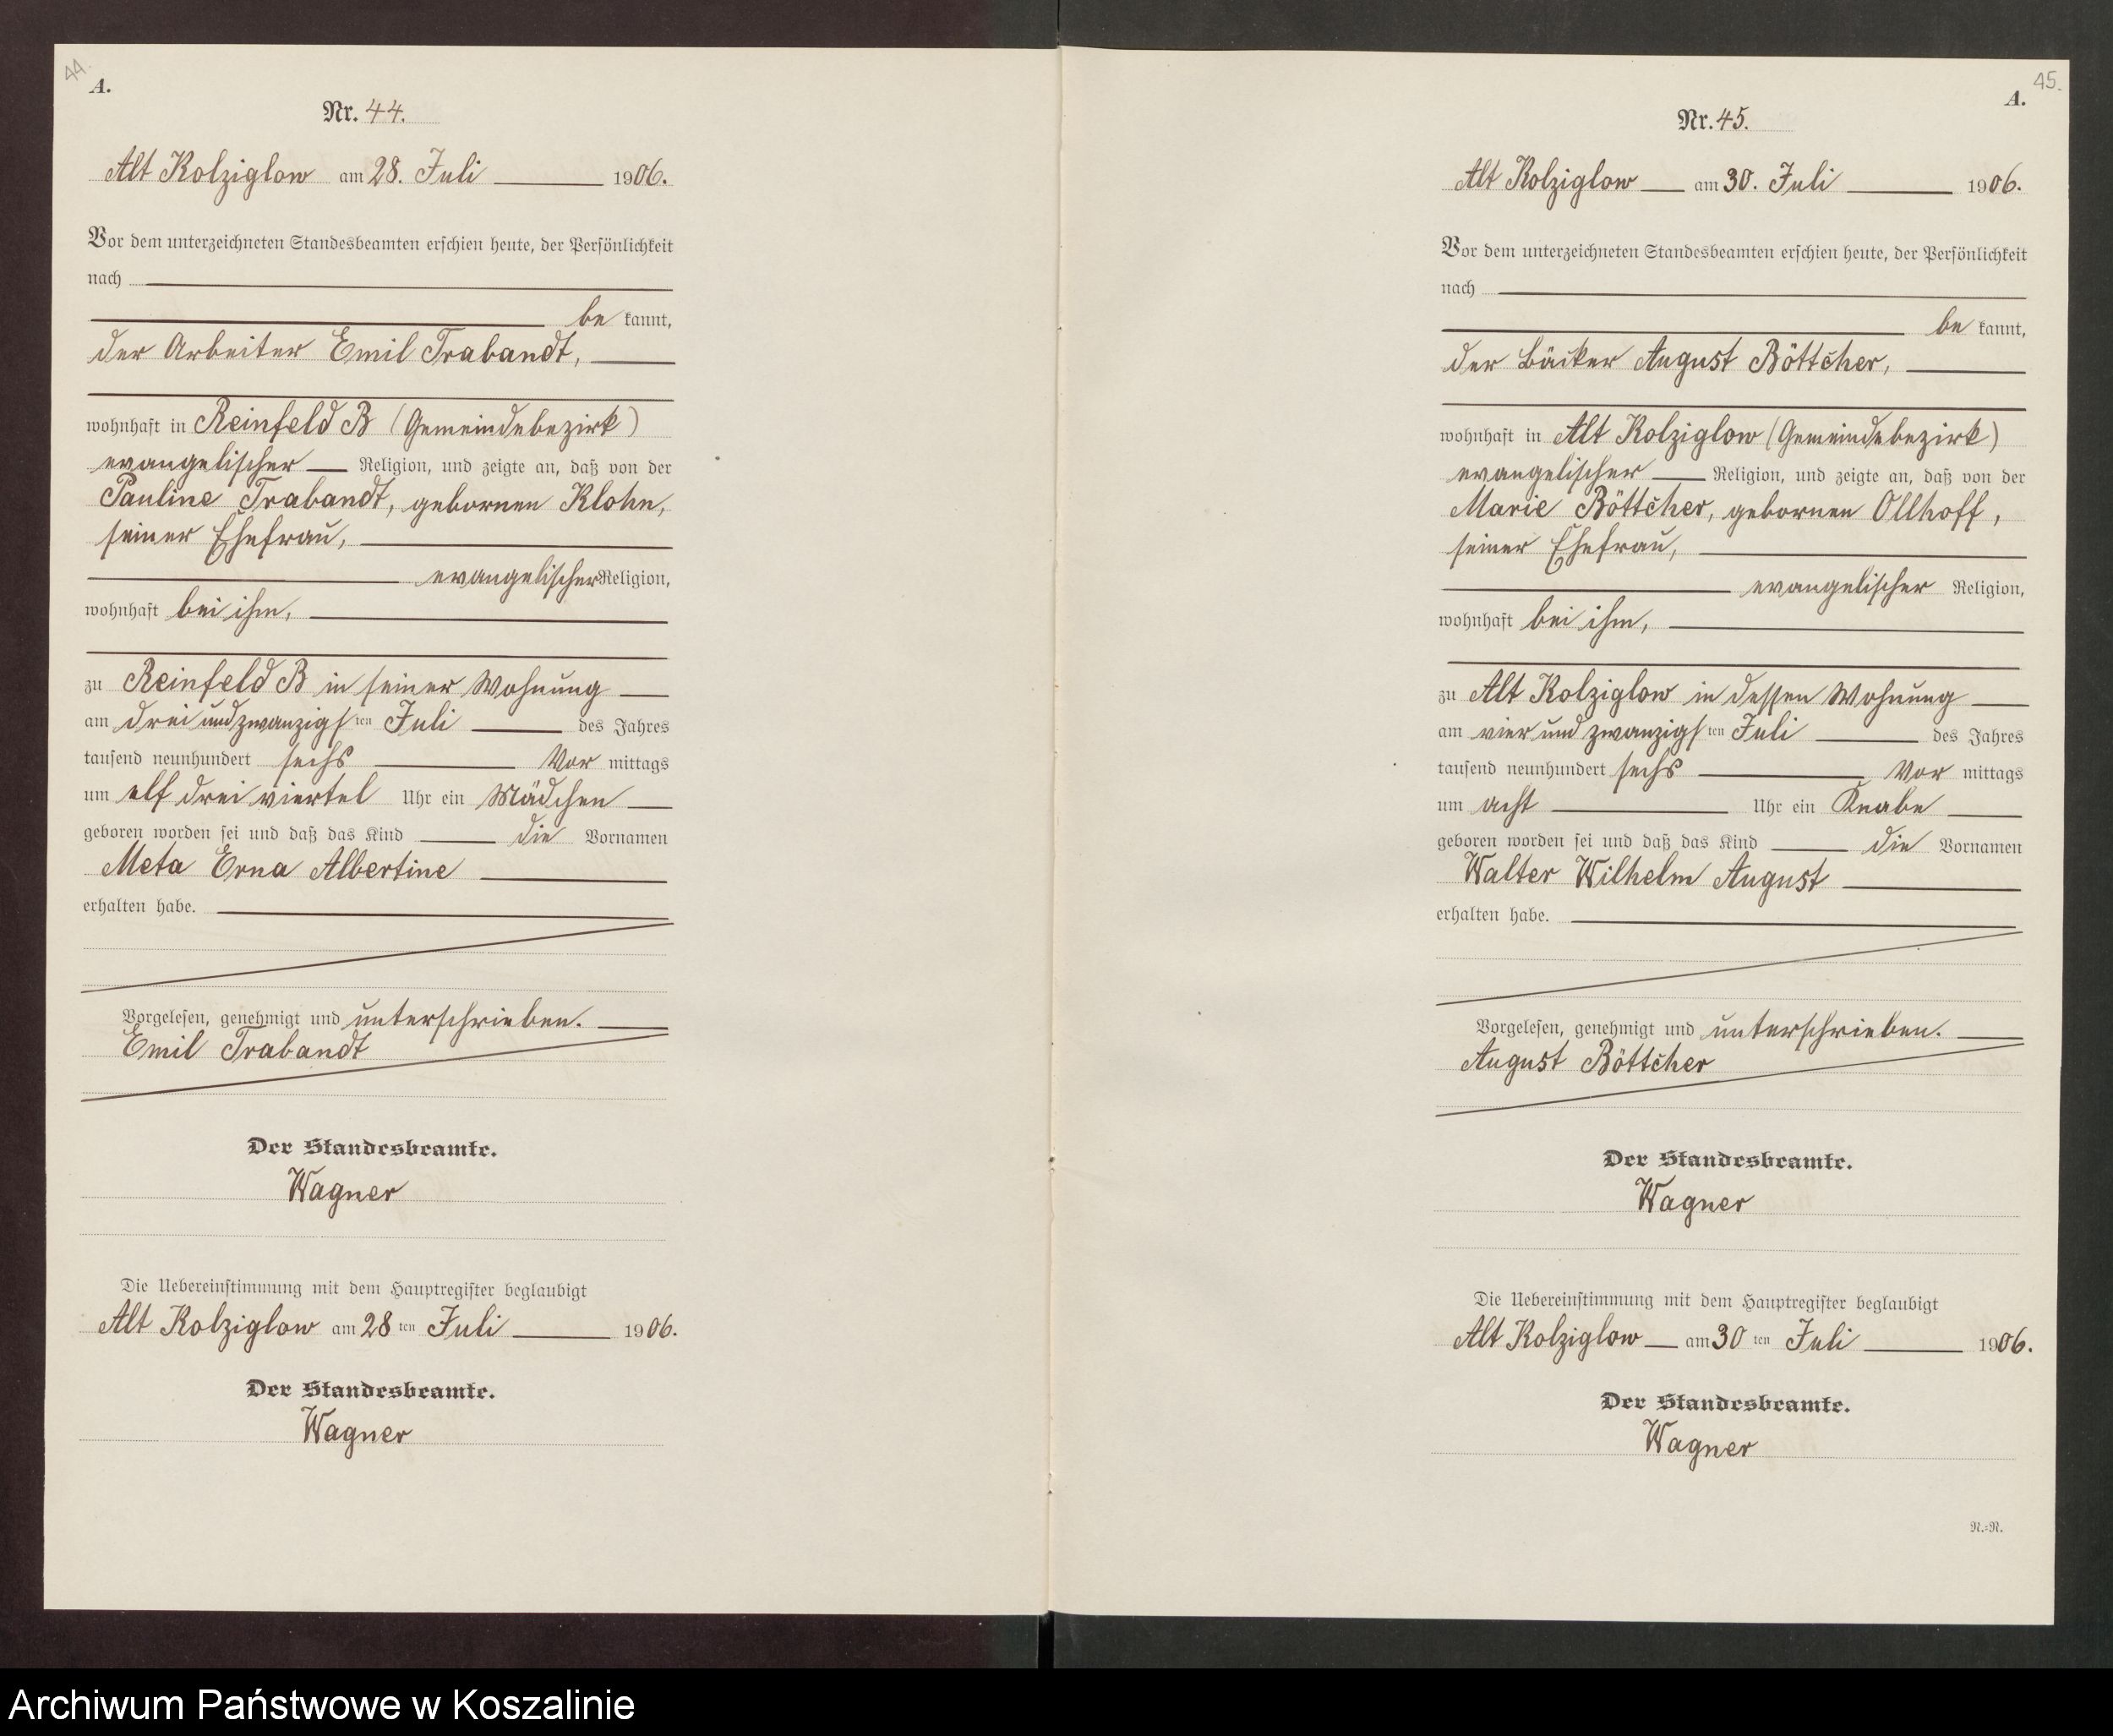 44.
A.
Nr. 44.
Alt Kolziglow am 28. Juli 1906.
Vor dem unterzeichneten Standesbeamten erschien heute, der Persönlichkeit
nach
be kannt,
der Arbeiter Emil Trabandt,
wohnhaft in Reinfeld B (Gemeindebezirk)
evangelischer Religion, und zeigte an, daß von der
Pauline Trabandt, gebornen Klohn,
seiner Ehefrau,
evangelischer Religion,
wohnhaft bei ihm,
zu Reinfeld B in seiner Wohnung
am drei und zwanzigsten Juli des Jahres
tausend neunhundert sechs Vor mittags
um elf drei viertel Uhr ein Mädchen
geboren worden sei und daß das Kind die Vornamen
Meta Erna Albertine
erhalten habe.
Vorgelesen, genehmigt und unterschrieben.
Emil Trabandt
Der Standesbeamte.
Wagner
Die Uebereinstimmung mit dem Hauptregister beglaubigt
Alt Kolziglow am 28 ten Juli 1906.
Der Standesbeamte.
Wagner
45.
A.
Nr. 45.
Alt Kolziglow am 30. Juli 1906.
Vor dem unterzeichneten Standesbeamten erschien heute, der Persönlichkeit
nach
be kannt,
der Bäcker August Böttcher,
wohnhaft in Alt Kolziglow (Gemeindebezirk)
evangelischer Religion, und zeigte an, daß von der
Marie Böttcher, gebornen Ollhoff,
seiner Ehefrau,
evangelischer Religion,
wohnhaft bei ihm,
zu Alt Kolziglow in dessen Wohnung
am vier und zwanzigsten Juli des Jahres
tausend neunhundert sechs Vor mittags
um acht Uhr ein Knabe
geboren worden sei und daß das Kind die Vornamen
Walter Wilhelm August
erhalten habe.
Vorgelesen, genehmigt und unterschrieben.
August Böttcher
Der Standesbeamte.
Wagner
Die Uebereinstimmung mit dem Hauptregister beglaubigt
Alt Kolziglow am 30 ten Juli 1906.
Der Standesbeamte.
Wagner
N.=N.
Archiwum Państwowe w Koszalinie